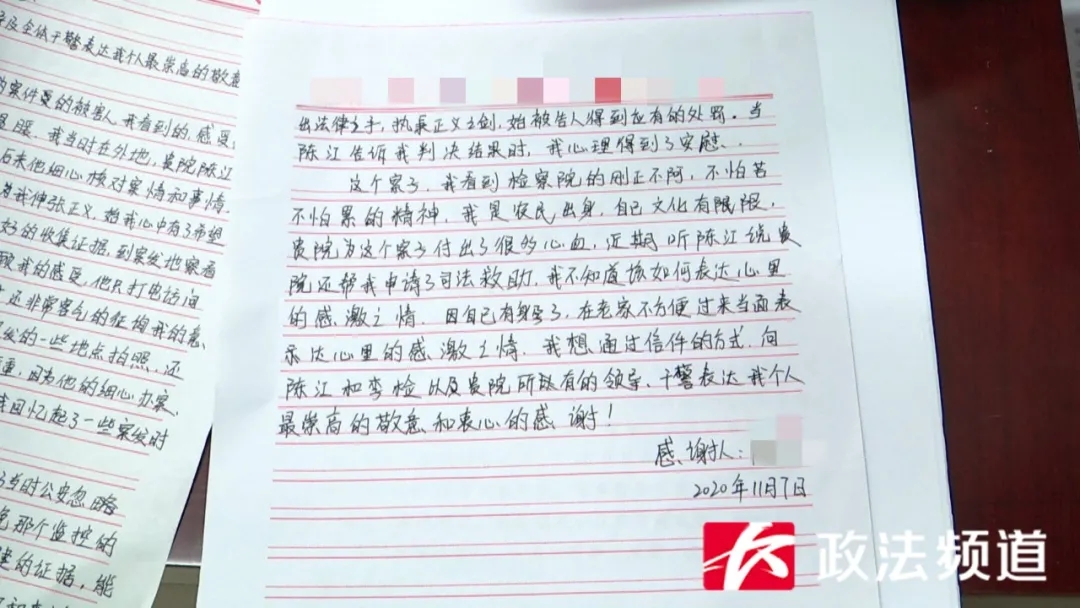 及全体干警表达我个人最崇高的敬意
案件里的被害人,我看到的,感受
我当时在外地,贵院陈江
后来他细心核对案情和事情
着我伸张正义,给我心中有了希望
好的收集证据,到案发地察看
取我的感受,他只打电话问
还非常客气的征询我的意
发的一些地点拍照,还
重,因为他的细心办案、
我回忆起了一些案发时
当时公安忽略
那个监控的
的证据,能
出法律之手,执秉正义之剑,始被告人得到应有的处罚。当
陈江告诉我判决结果时,我心理得到了安慰、
这个案子,我看到检察院的刚正不阿,不怕苦
不怕累的精神,我是农民出身,自己文化有限限,
贵院为这个案子付出了很多心血,近期听陈江说贵
院还帮我申请了司法救助,我不知道该如何表达心里
的感激之情,因自己有身孕了,在老家不方便过来当面表
示达心里的感激之情,我想通过信件的方式,向
陈江和李检以及贵院所有的领导、干警表达我个人
最崇高的敬意和衷心的感谢!
感谢人:
2020年11月7日
政法频道